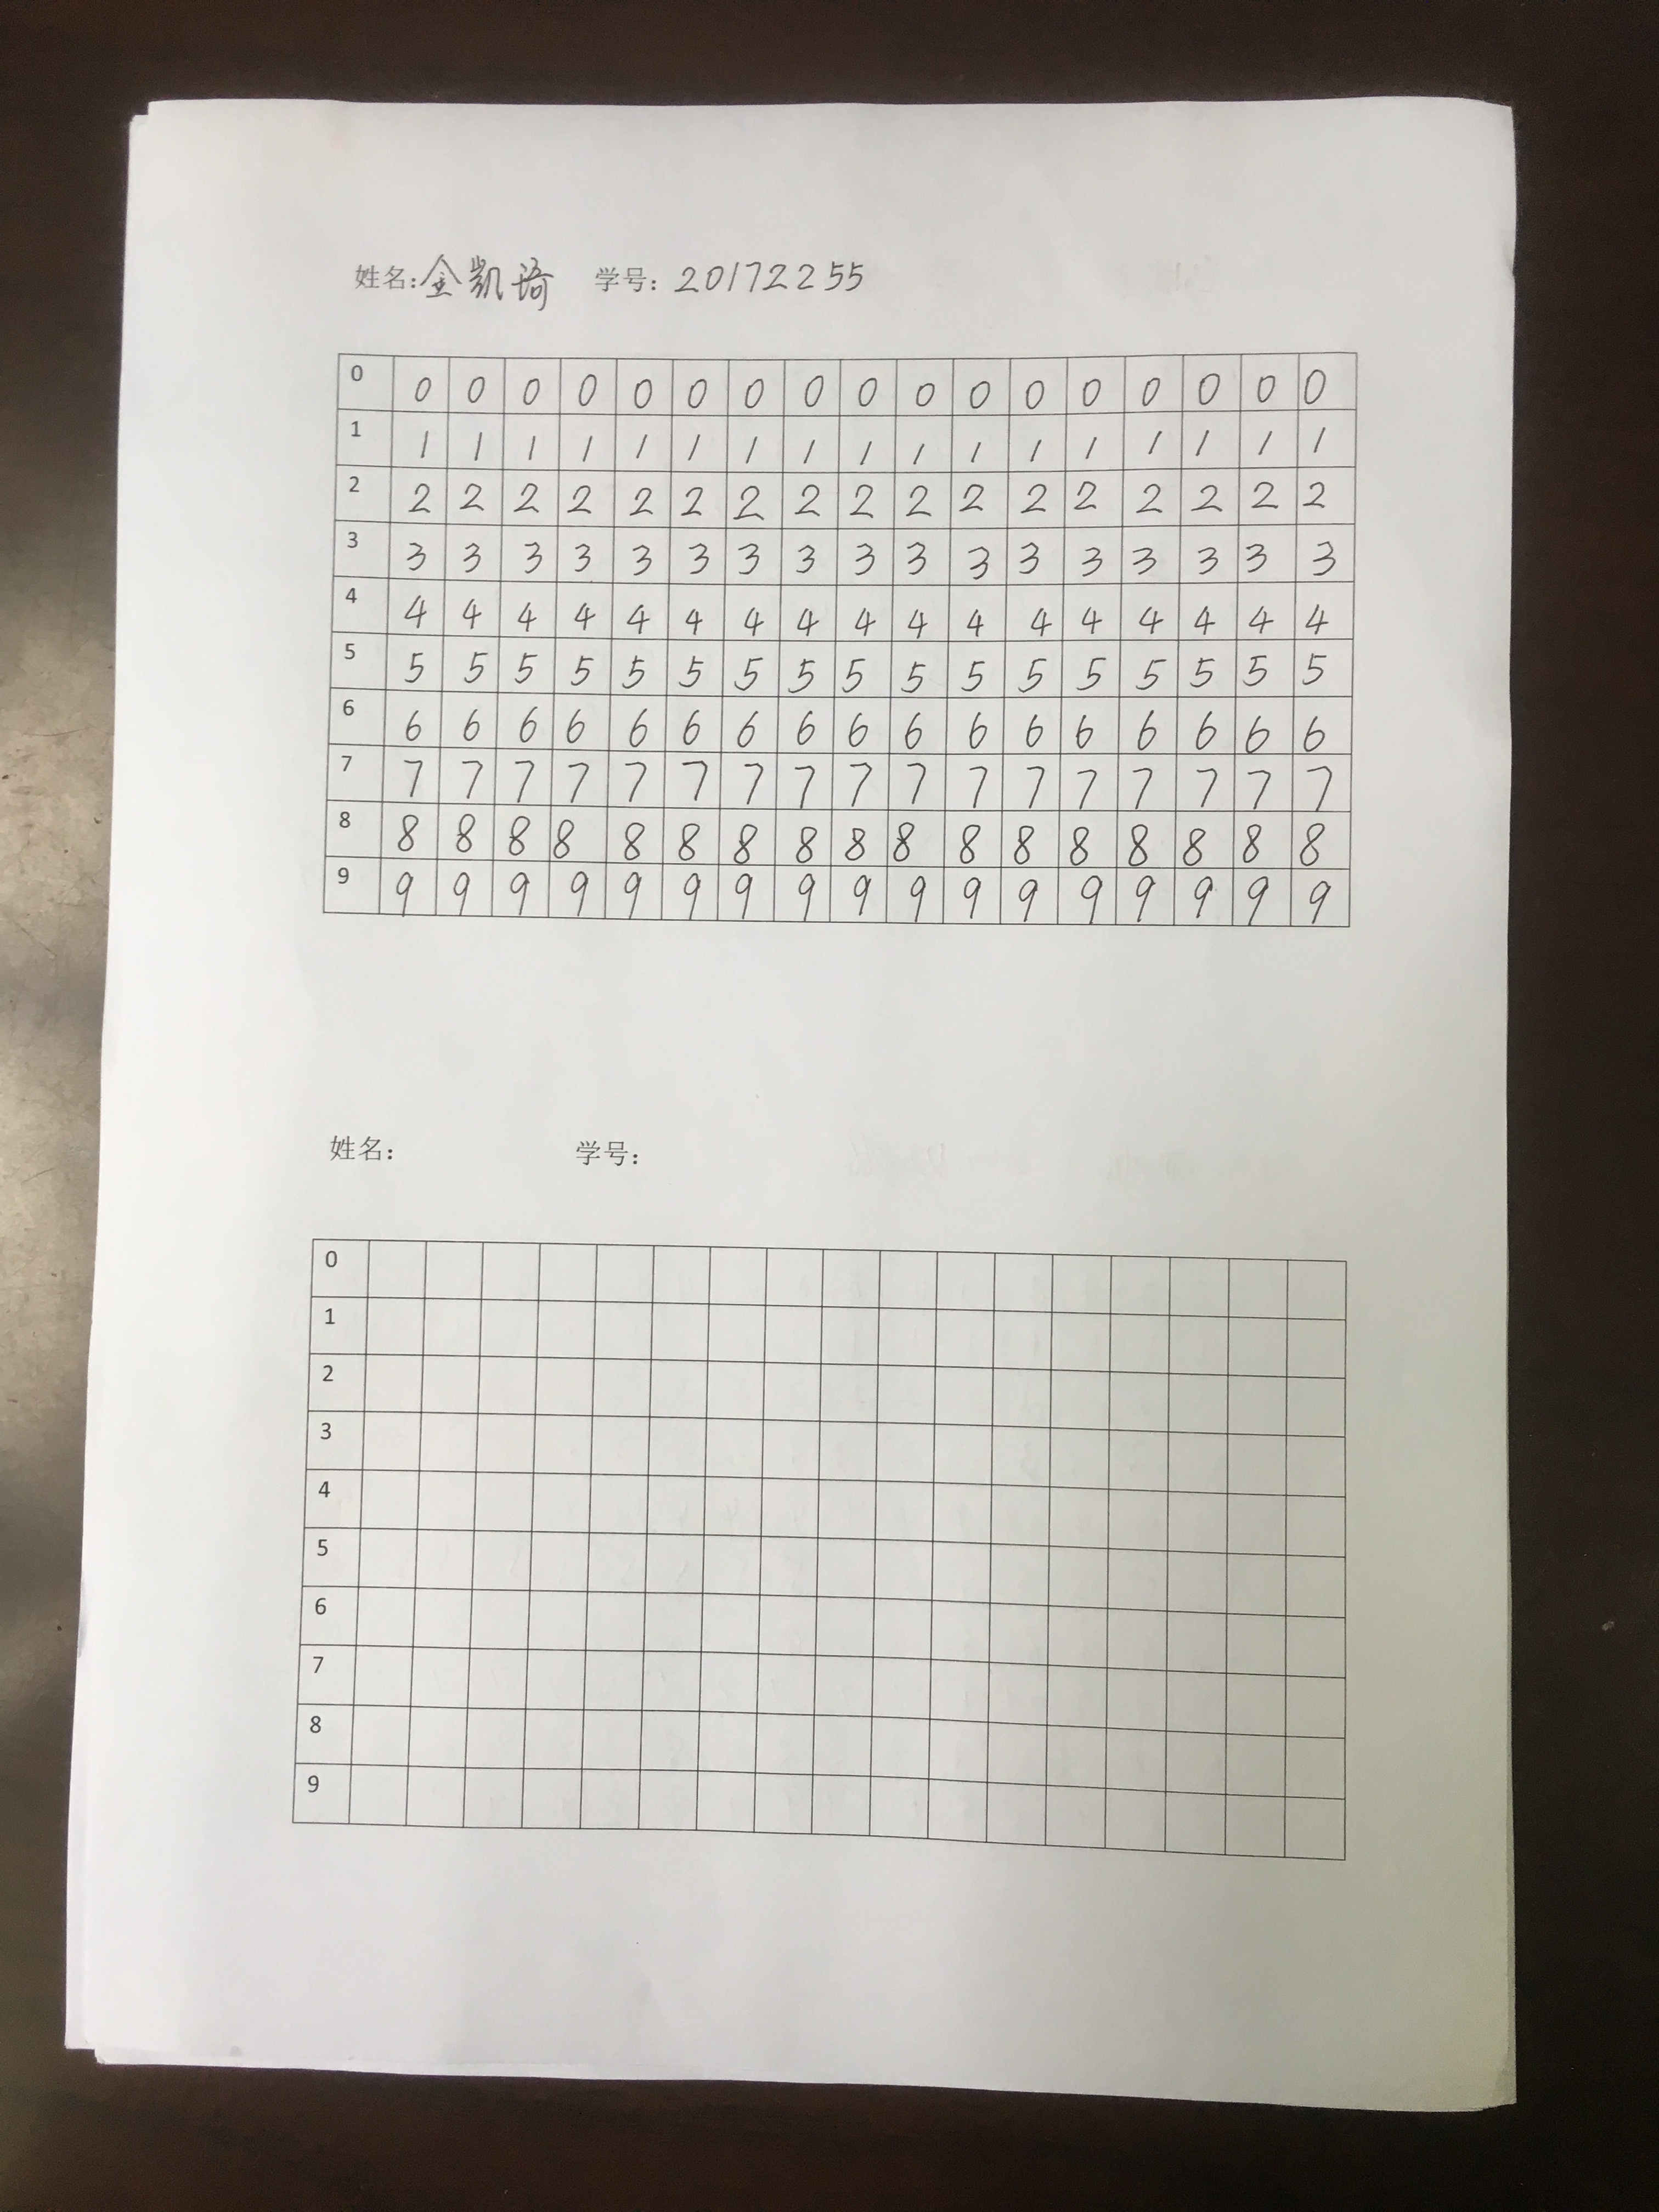 姓名:金凯琦 学号: 20172255
0 0 0 0 0 0 0 0 0 0 0 0 0 0 0 0 0 0
1 1 1 1 1 1 1 1 1 1 1 1 1 1 1 1 1 1
2 2 2 2 2 2 2 2 2 2 2 2 2 2 2 2 2 2
3 3 3 3 3 3 3 3 3 3 3 3 3 3 3 3 3 3
4 4 4 4 4 4 4 4 4 4 4 4 4 4 4 4 4 4
5 5 5 5 5 5 5 5 5 5 5 5 5 5 5 5 5 5
6 6 6 6 6 6 6 6 6 6 6 6 6 6 6 6 6 6
7 7 7 7 7 7 7 7 7 7 7 7 7 7 7 7 7 7
8 8 8 8 8 8 8 8 8 8 8 8 8 8 8 8 8 8
9 9 9 9 9 9 9 9 9 9 9 9 9 9 9 9 9 9
姓名: 学号:
0
1
2
3
4
5
6
7
8
9